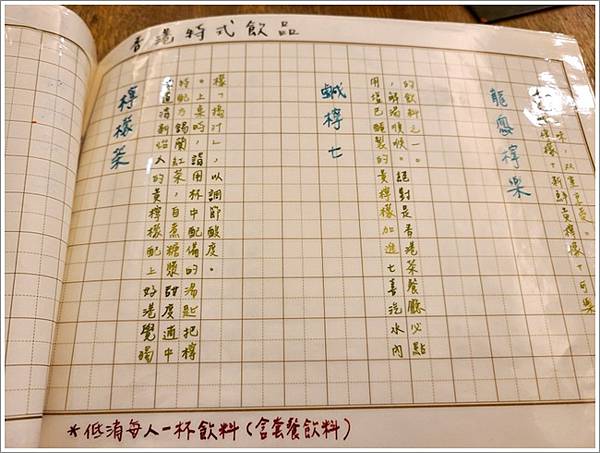 香港特式飲品
檸檬茶
道清新怡人的黃檸檬配上好港覺獨
特配方錫蘭紅茶，自煮糖漿甜度適中
。上桌時，請用杯中配備的湯匙把檸
檬「搗汁」，以調節酸度。
鹹檸七
用塩巴醃製的黃檸檬加進七喜汽水內
，解渴順喉。絕對是香港茶餐廳必點
的飲料之一。
龍鳳檸樂
檸檬+新鮮黃檸檬+可樂
味，双重享受。
*低消每人一杯飲料(含套餐飲料)